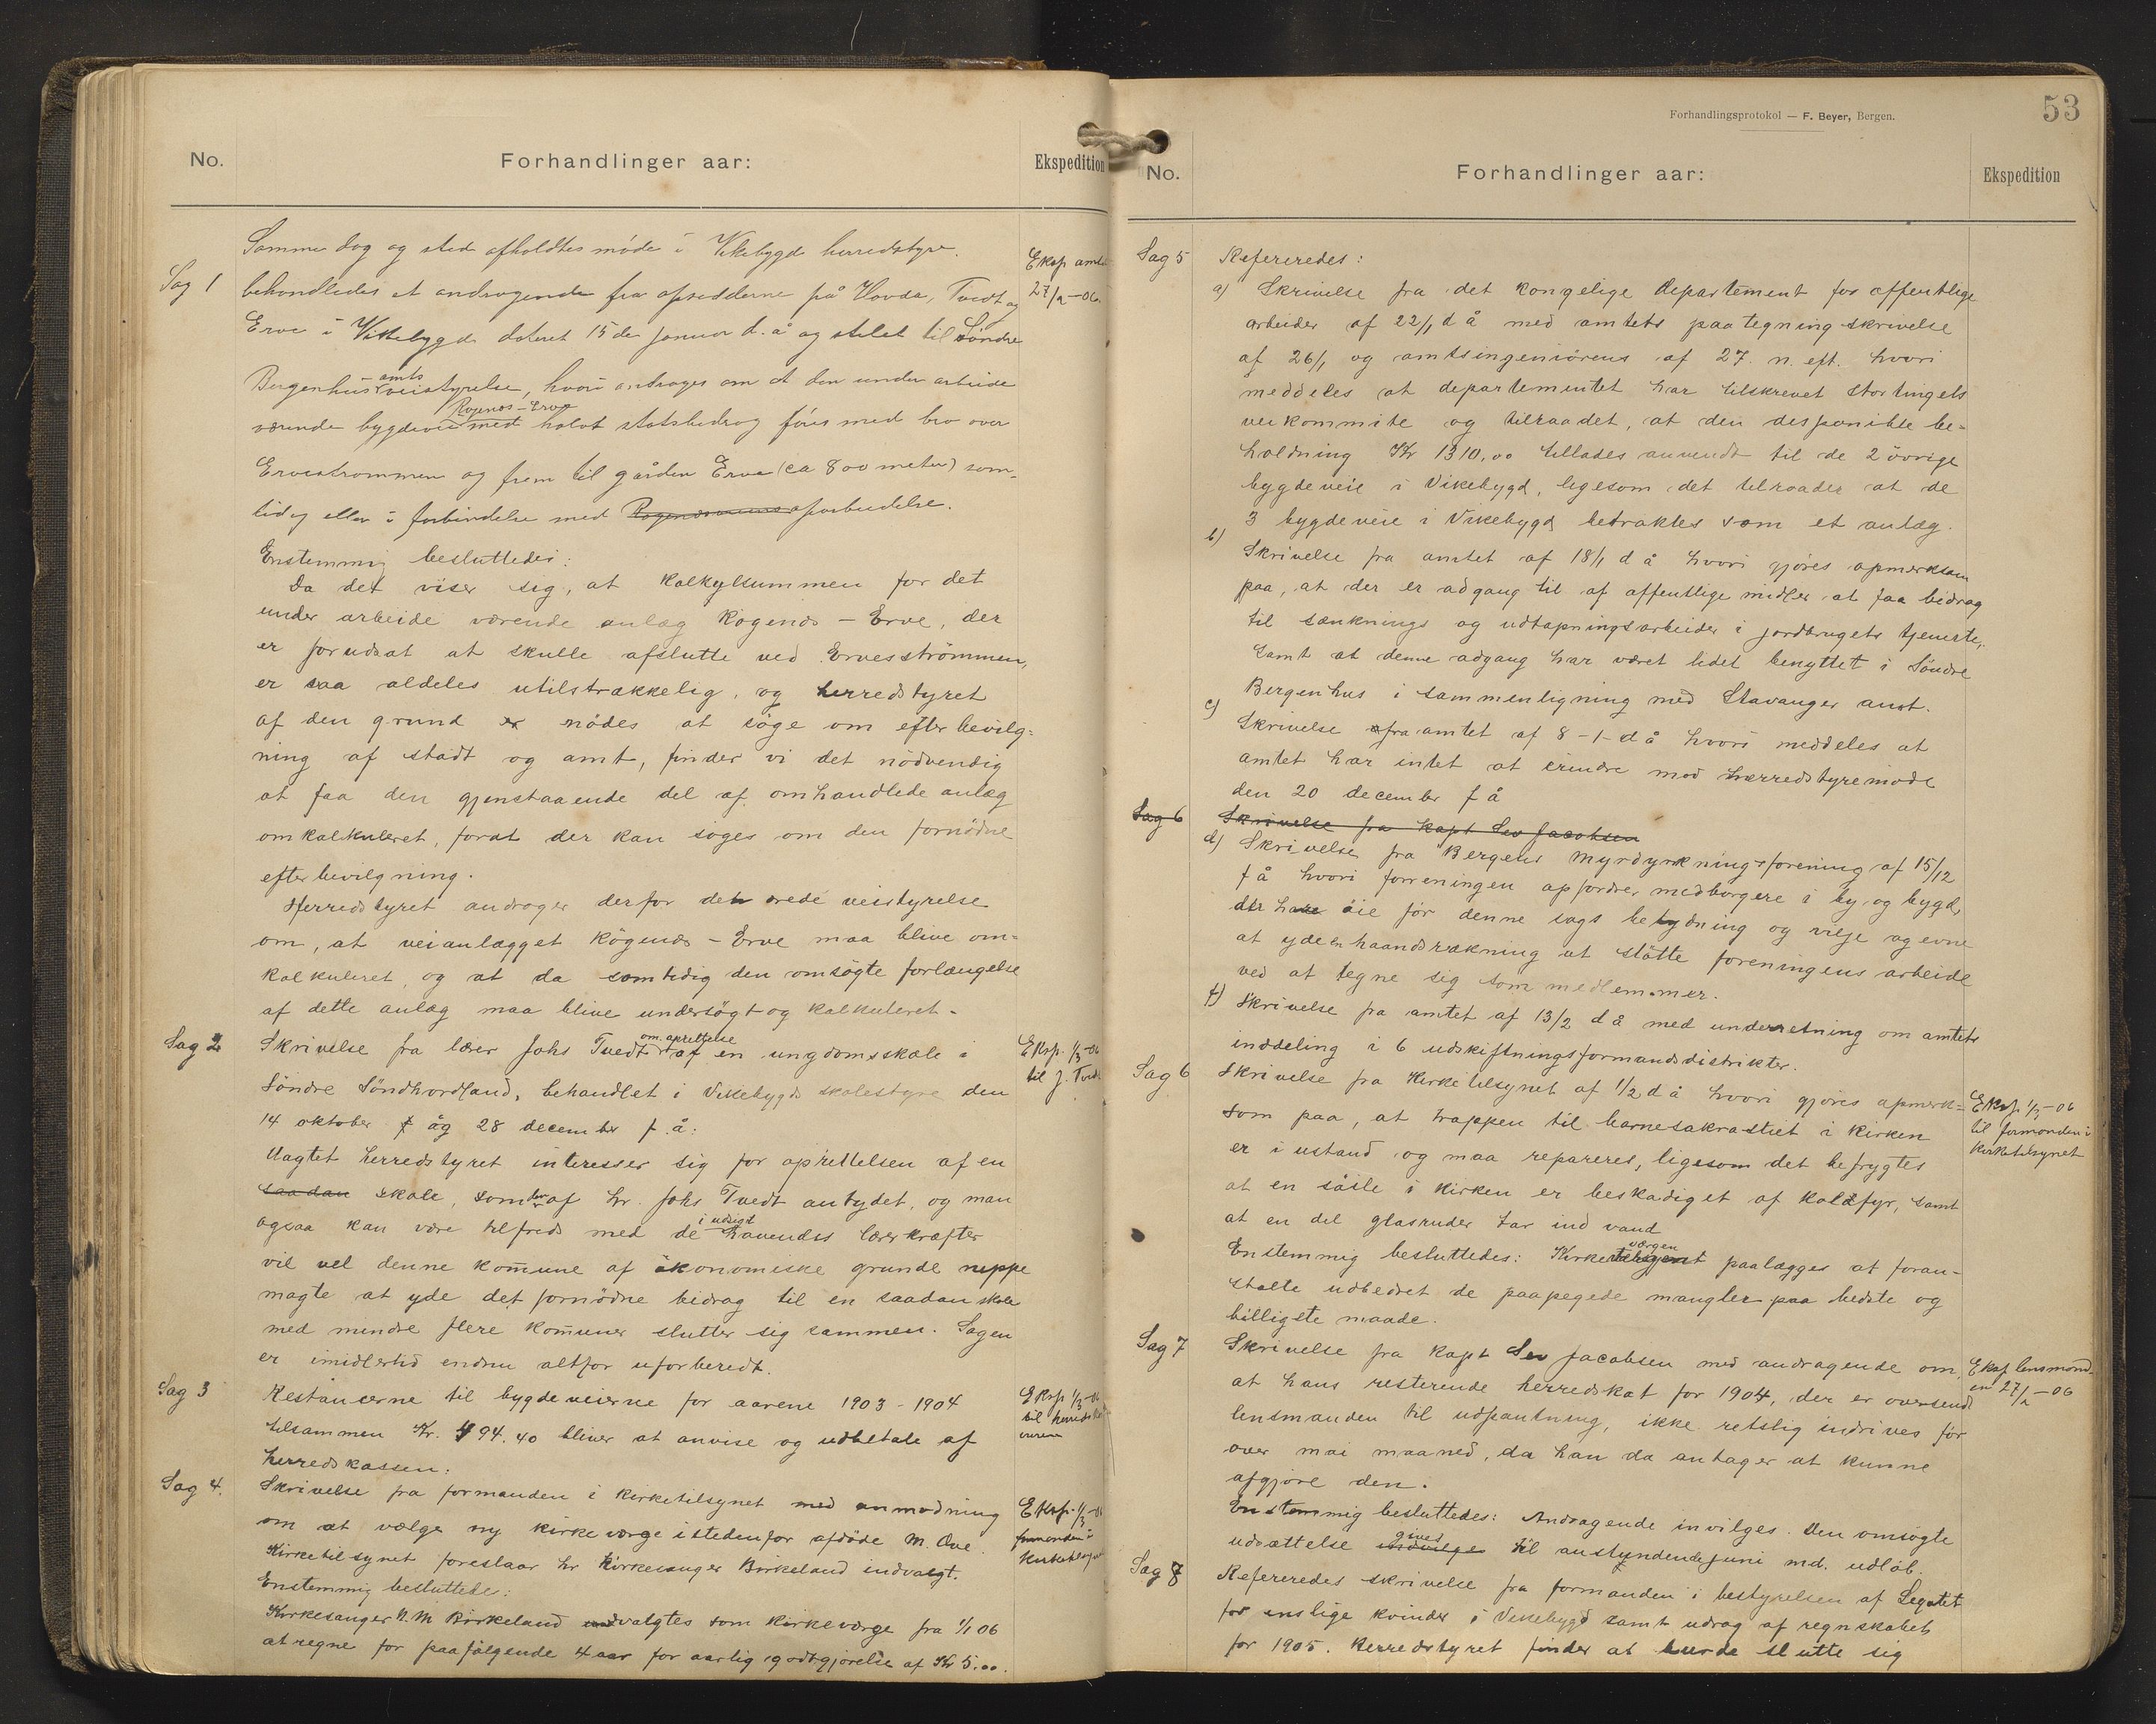 No.
Forhandlinger aar:
Ekspedition
Samme dag og sted afholdtes møde i Vikebygd herredstyre.
Sag 1
behandledes et andragende fra opsidderne på Hovda, Tvedt og
Erve i Vikebygd dateret 15de januar d. å og stilet til Söndre
Bergenhus amts veistyrelse, hvori andrages om at den under arbeide
værende bygdevei Rogenæs-Erve med halvt statsbidrag föres med bro over
Ervestrommen og frem til gården Erve (ca 800 meter) sam-
tidig eller i forbindelse med oparbeidelse.
Eksp amtet
27/2-06.
Enstemmig besluttedes:
Da det viser sig, at kalkylsummen for det
under arbeide værende anlæg Rogenæs - Erve, der
er forudsat at skulle afslutte ved Ervesströmmen,
er saa aldeles utilstrækkelig, og herredstyret
af den grund er nödes at söge om efterbevilg=
ning af stadt og amt, finder vi det nödvendig
at faa den gjenstaaende del af omhandlede anlæg
omkalkuleret, forat der kan söges om den fornödne
efterbevilgning.
Herredstyret andrager derfor den ærede veistyrelse
om, at veianlægget Rögenæs - Erve maa blive om=
kalkuleret, og at da samtidig den omsögte forlængelse
af dette anlæg maa blive undersögt og kalkuleret.
Sag 2
Skrivelse fra lærer Johs Tvedt om oprettelse af en ungdomsskole i
Söndre Söndhordland, behandlet i Vikebygds skolestyre den
14 oktober f åg 28 december f. å:
Eksp. 1/3-06
til J. Tvedt
Uagtet herredstyret interesser sig for oprettelsen af en
saadan skole, som den af hr. Johs Tvedt antydet, og man
ogsaa kan være tilfreds med de i udsigt havendes lærerkræfter
vil vel denne kommune af ökonomiske grunde neppe
magte at yde det fornödne bidrag til en saadan skole
med mindre flere kommuner slutter sig sammen. Sagen
er imidlertid endnu altfor uforberedt.
Sag 3
Restancerne til bygdeveierne for aarene 1903 - 1904
tilsammen Kr. 494.40 bliver at anvise og udbetale af
herredskassen.
Eksp 1/3-06
til herreds
Sag 4.
Skrivelse fra formanden i kirketilsynet med anmodning
om at vælge ny kirkeværge istedenfor afdöde M. Ove.
Kirketilsynet foreslaar hr kirkesanger Birkeland indvalgt.
Eksp. 1/3-06
formanden i
Kirketilsynet
Enstemmig besluttedes:
Kirkesanger N. M Birkeland valgtes som kirkeværge fra 1/1 06
at regne for paafölgende 4 aar for aarlig godtgjörelse af Kr 5.00.
Forhandlingsprotokol — F. Beyer, Bergen.
53
No.
Forhandlinger aar:
Ekspedition
Sag 5
Refereredes:
a) Skrivelse fra det kongelige departement for offentlige
arbeider af 22/1 d å med amtets paategningsskrivelse
af 26/1 og amtsingeniörens af 27. n. eft. hvori
meddeles at departementet har tilskrevet Stortingets
veikommite og tilraadet, at den desponible be=
holdning Kr 1310,00 tillades anvendt til de 2 övrige
bygdeveie i Vikebygd, ligesom det tilraades at de
3 bygdeveie i Vikebygd betraktes som et anlæg.
b) Skrivelse fra amtet af 18/1 d å hvori gjöres opmerksom
paa, at der er adgang til af offentlige midler at faa bidrag
til sænknings og udtapningsarbeider i jordbrugets tjeneste,
samt at denne adgang har været lidet benyttet i Söndre
Bergenhus i sammenligning med Stavanger amt.
c) Skrivelse fra amtet af 8 - 1 - d å hvori meddeles at
amtet har intet at erindre mod herredstyremöde
den 20 december f å
Sag 6 Skrivelse fra Kapt Sev Jacobsen
d) Skrivelse fra Bergens Myrdyrkningsforening af 15/12
f å hvori forreningen opfordrer medborgere i by og bygd,
der have öie for denne sags betydning og vilje og evne
at yde en haandsrækning at stötte foreningens arbeide
ved at tegne sig som medlemmer.
f) Skrivelse fra amtet af 13/2 d å med underretning om amtets
inddeling i 6 udskiftningsformandsdistrikter.
Sag 6
Skrivelse fra Kirketilsynet af 1/2 d å hvori gjöres opmerk=
som paa, at trappen til barnesakrastiet i kirken
er i ustand og maa repareres, ligesom det befrygtes
at en söile i kirken er beskadiget af koldfyr, samt
at en del glasruder tar ind vand
Eksp. 1/3-06
til formanden i
kirketilsynet
Enstemmig besluttedes: Kirkeværgen paalægges at foran-
stalte udbedret de paapegede mangler paa bedste og
billigste maade.
Sag 7
Skrivelse fra Kapt Sev Jacobsen med andragende om
at hans resterende herredskat for 1904, der er oversendt
lensmanden til udpantning, ikke retslig indrives för
over mai maaned, da han da antager at kunne
afgjöre den.
Eksp lensmand-
en 27/2-06
Enstemmig besluttedes: Andragende invilges. Den omsögte
udsættelse gives til anstundende juni md. udlöb.
Sag 8
Refereredes skrivelse fra formanden i bestyrelsen af Legatet
for enslige kvinder i Vikebygd samt udrag af regnskabet
for 1905. Herredstyret finder at burde slutte sig